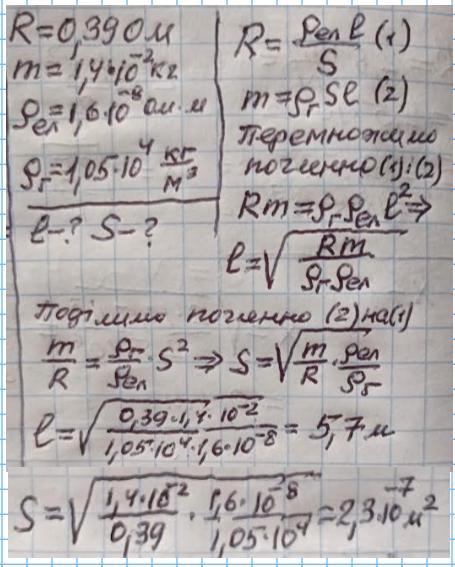 R = 0,39 Ом
m = 1,4·10⁻² кг
ρел = 1,6·10⁻⁸ Ом·м
ρг = 1,05·10⁴ кг/м³
l-? S-?
R = ρел l/S (1)
m = ρг S l (2)
Перемножимо
почленно (1) і (2)
Rm = ρг ρел l² ⇒
l = √(Rm/(ρг ρел))
Поділимо почленно (2) на (1)
m/R = ρг/ρел · S² ⇒ S = √(m/R · ρел/ρг)
l = √(0,39·1,4·10⁻²/(1,05·10⁴·1,6·10⁻⁸)) = 5,7 м
S = √(1,4·10⁻²/0,39 · 1,6·10⁻⁸/1,05·10⁴) = 2,3·10⁻⁷ м²